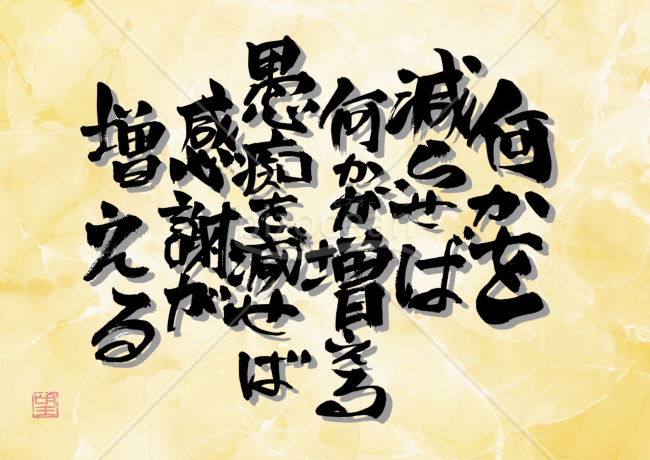 何かを
減らせば
何かが増える
愚痴を減せば
感謝が
増える
望